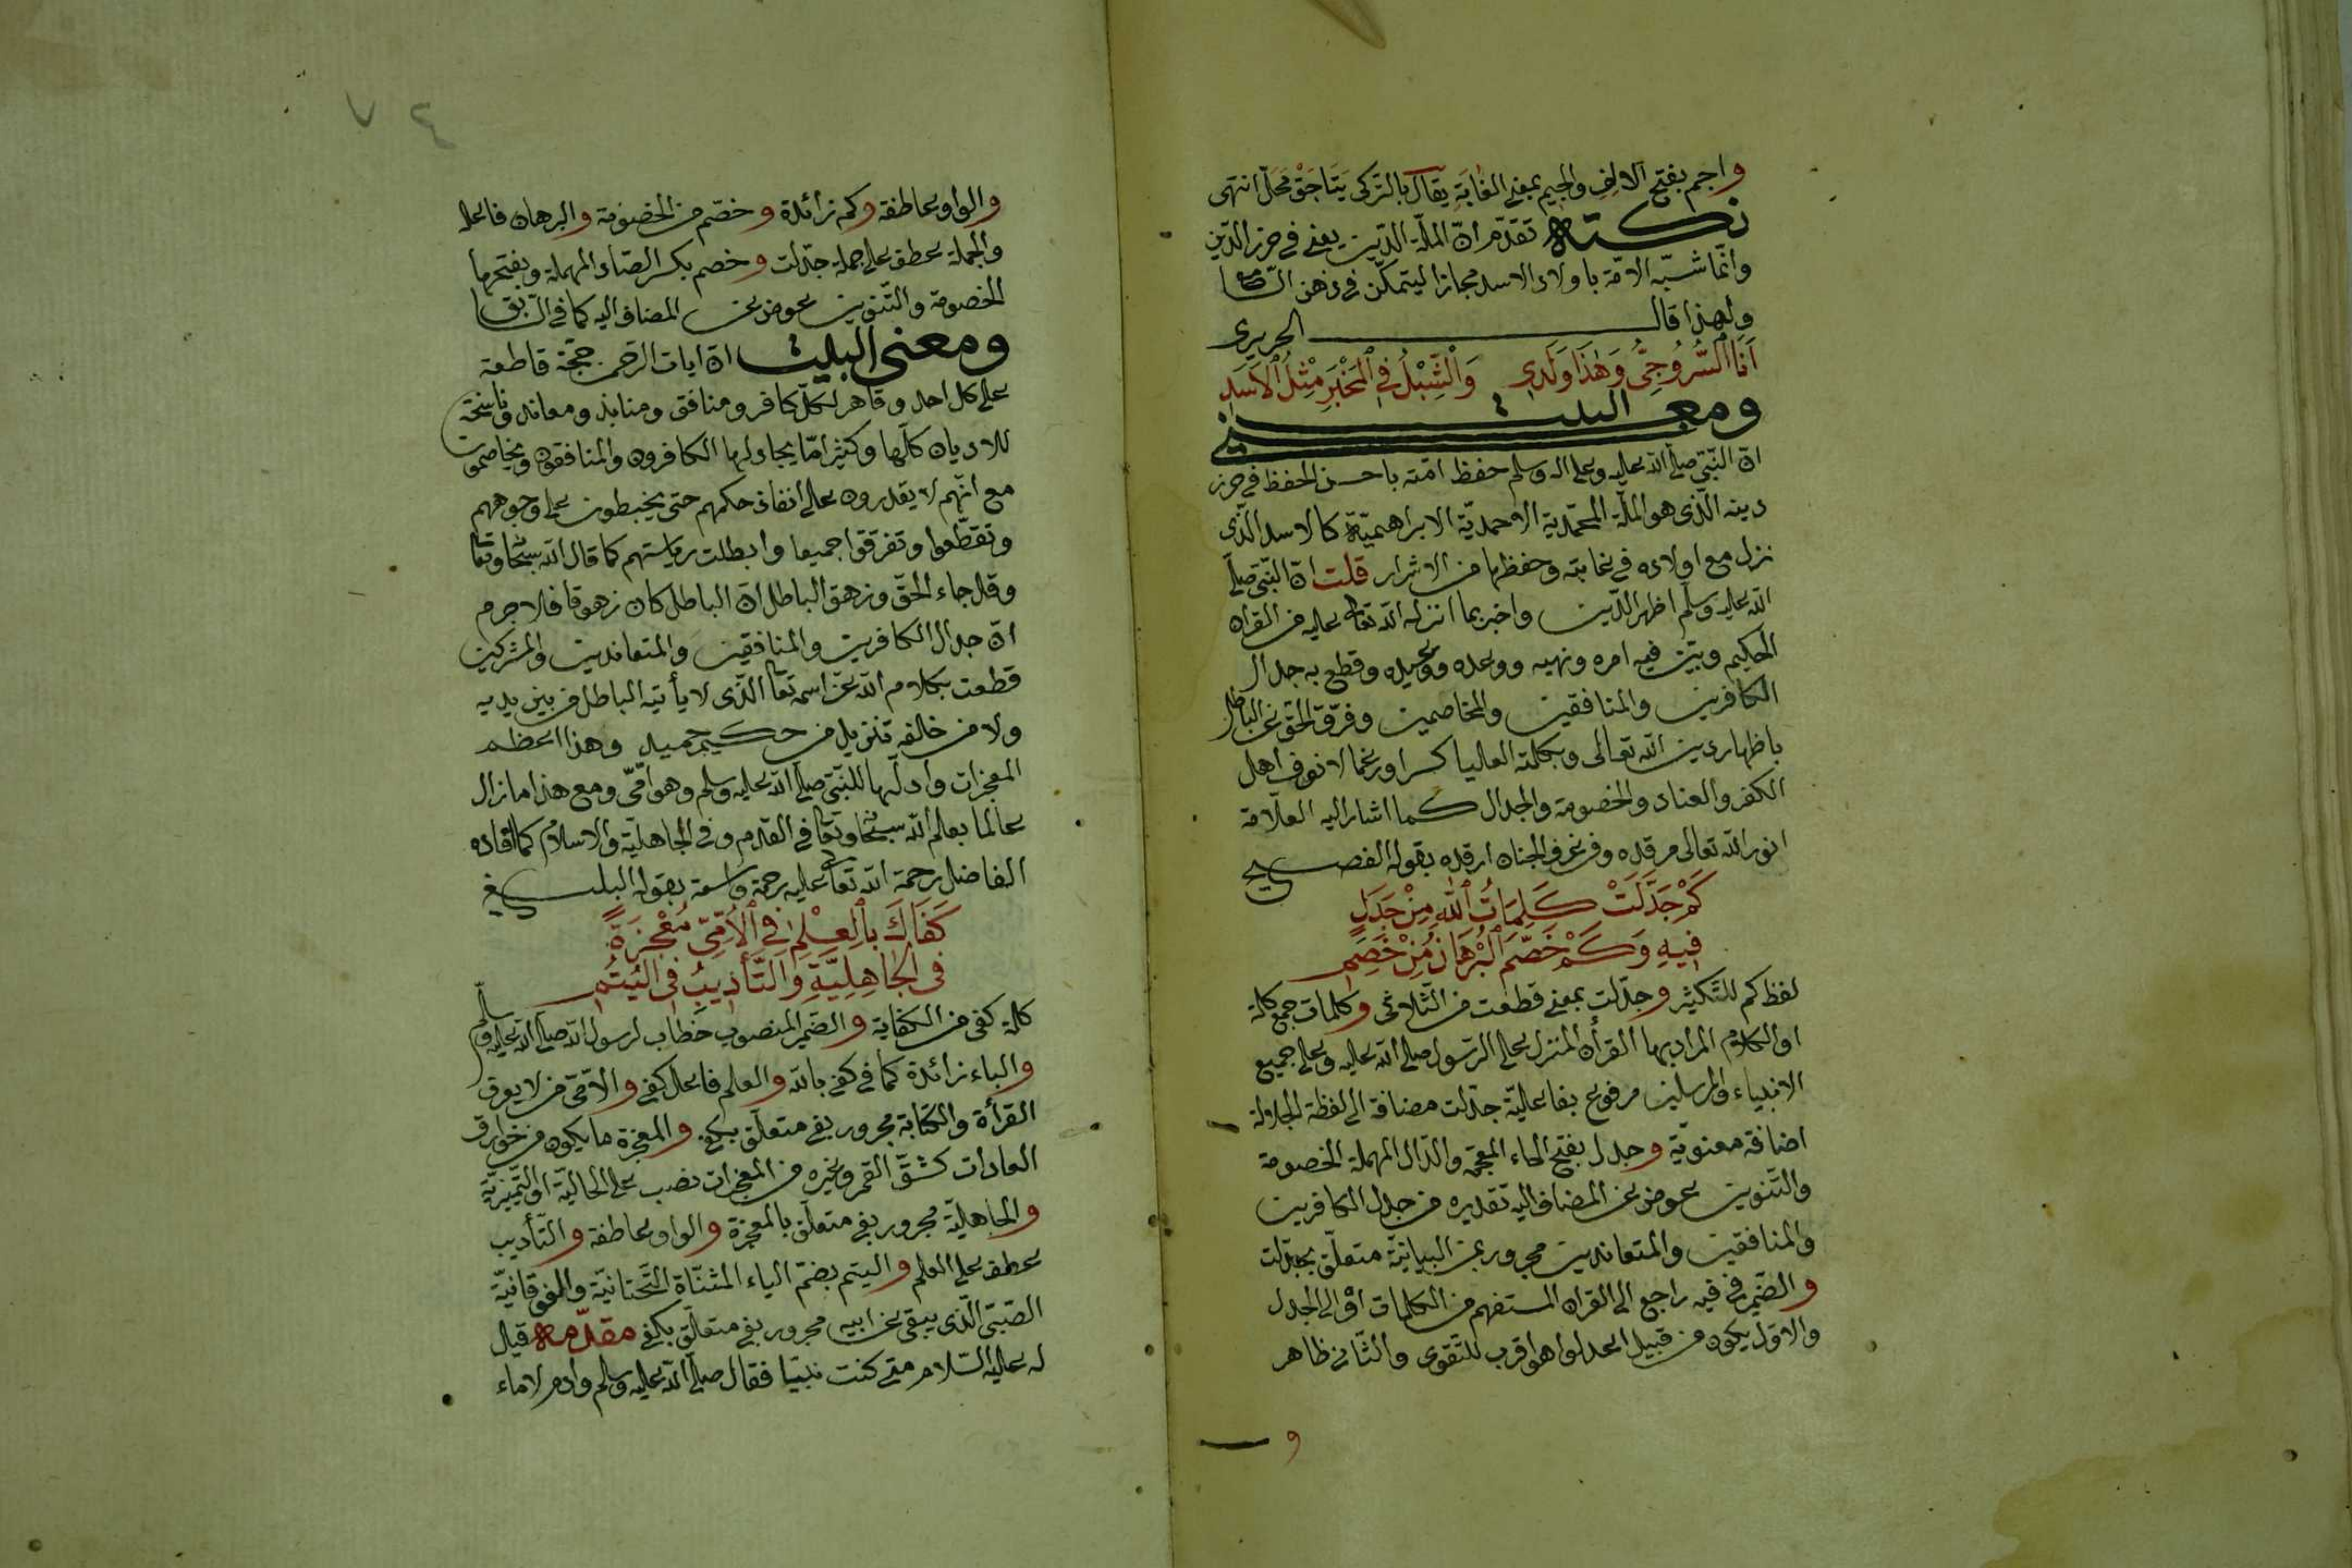 واجم بفتح الالف والجيم بمعنى الغابة يقال بالتركى يتاجق محل انتهى
نكتة تقدم انّ الملّة الدّين يعنى فى حرز الدّين
وانّما شبّه الامّة باولاد الاسد مجازا ليتمكّن فى ذهن السّامع
ولهذا قال الحريرى
اَنَا السَّرُوجِىُّ وَهٰذَا وَلَدِى وَالشِّبْلُ فِى الْمَخْبَرِ مِثْلُ الْاَسَدِ
ومعنى البيت
انّ النّبىّ صلى الله عليه وعلى اله وسلم حفظ امّته باحسن الحفظ فى حرز
دينه الّذى هو الملّة المحمّدية الاحمديّة الابراهيميّة كالاسد الّذى
نزل مع اولاده فى غابته وحفظها من الاشرار قلت انّ النّبىّ صلّى
الله عليه وسلّم اظهر الدّين واخبر بما انزله الله تعالى عليه من القران
الحكيم وبيّن فيه امره ونهيه ووعده ووعيده وقطع به جدال
الكافرين والمنافقين والمخاصمين وفرّق الحقّ عن الباطل
باظهار دين الله تعالى وبكلمته العليا كسرا ورغما لانوف اهل
الكفر والعناد والخصومة والجدال كما اشار اليه العلّامة
انور الله تعالى مرقده وفى غرف الجنان ارقده بقوله الفصيح
كَمْ جَدَّلَتْ كَلِمَاتُ اللّٰهِ مِنْ جَدَلٍ
فِيهِ وَكَمْ خَصَّمَ الْبُرْهَانُ مِنْ خَصِمِ
لفظ كم للتّكثير وجدّلت بمعنى قطعت من الثّلاثى وكلمات جمع كلمة
او الكلام المراد بها القرأن المنزل على الرّسول صلى الله عليه وعلى جميع
الانبياء والمرسلين مرفوع بفاعليّة جدّلت مضافة الى لفظة الجلالة
اضافة معنويّة وجدل بفتح الحاء المعجمة والدّال المهملة الخصومة
والتّنوين عوض عن المضاف اليه تقديره من جدل الكافرين
والمنافقين والمتعاندين مجرور بمن البيانيّة متعلّق بجدّلت
والضّمير فى فيه راجع الى القران المستفهم من الكلمات او الى الجدل
والاوّل يكون من قبيل اعدلوا هو اقرب للتّقوى والثّانى ظاهر
و
٤٧
والواو عاطفة وكم زائدة وخصّم من الخصومة والبرهان فاعله
والجملة عطف على جملة جدّلت وخصم بكسر الصّاد المهملة وبفتحها
الخصومة والتّنوين عوض عن المضاف اليه كما فى السّابق
ومعنى البيت انّ ايات الرّحمن حجّة قاطعة
على كل احد وقاهر لكلّ كافر ومنافق ومنابذ ومعاند وناسخة
للاديان كلّها وكثير امّا يجادلها الكافرون والمنافقون ويخاصمون
مع انّهم لا يقدرون على انفاذ حكمهم حتى يخبطون على وجوههم
وتقطّعوا وتفرّقوا جميعا وابطلت رياستهم كما قال الله سبحا وتعا
وقل جاء الحقّ وزهق الباطل انّ الباطل كان زهوقا فلا جرم
انّ جدال الكافرين والمنافقين والمتعاندين والمشركين
قطعت بكلام الله عزّ اسمه تعا الّذى لا يأتيه الباطل من بين يديه
ولا من خلفه تنزيل من حكيم حميد وهذا اعظم
المعجزات وادلّها للنّبىّ صلى الله عليه وسلم وهو امّىّ ومع هذا ما زال
عالما بعلم الله سبحا وتعا فى القدم وفى الجاهليّة والاسلام كما افاده
الفاضل رحمة الله تعالى عليه رحمة واسعة بقوله البليغ
كَفَاكَ بِالْعِلْمِ فِى الْاُمِّىِّ مُعْجِزَةً
فِى الْجَاهِلِيَّةِ وَالتَّأْدِيبِ فِى الْيُتُمِ
كلمة كفى من الكفاية والضّمير المنصوب خطاب لرسول الله صلى الله عليه وسلّم
والباء زائدة كما فى كفى بالله والعلم فاعل كفى والامّىّ من لا يعرف
القرأة والكتابة مجرور بفى متعلّق بكفى والمعجزة ما يكون من خوارق
العادات كشقّ القمر وغيره من المعجزات نصب على الحاليّة او التّميزيّة
والجاهليّة مجرور بفى متعلّق بالمعجزة والواو عاطفة والتّأديب
عطف على العلم واليتم بضمّ الياء المثنّاة التّحتانيّة والفوقانيّة
الصّبىّ الّذى يبقى عن ابيه مجرور بفى متعلّق بكفى مقدّمة قيل
له عليه السّلام متى كنت نبيّا فقال صلى الله عليه وسلم وادم لا ماء